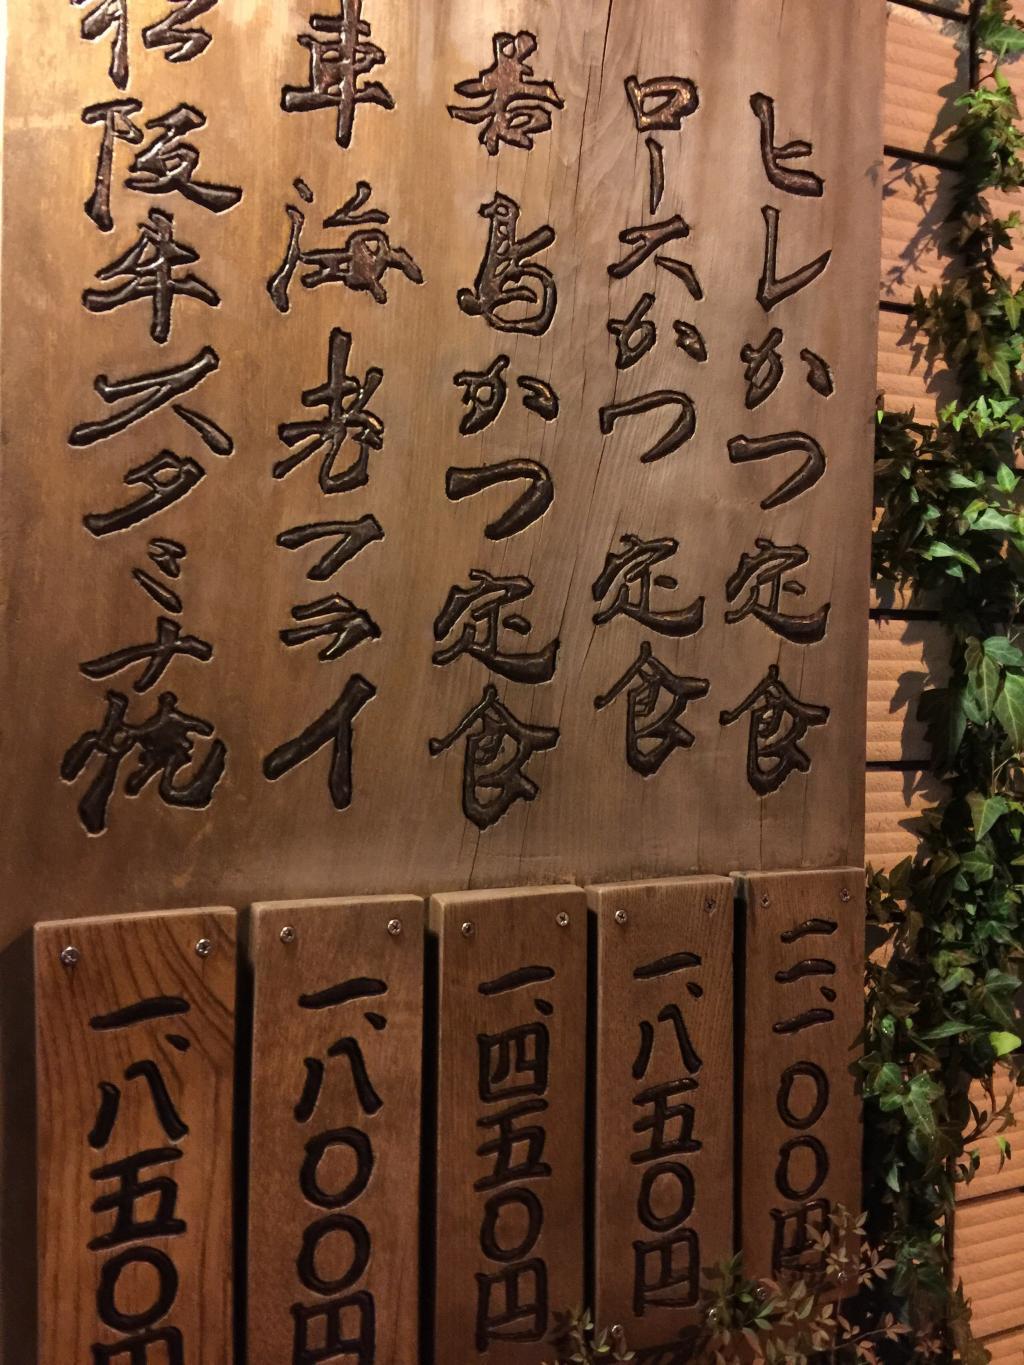 ヒレかつ定食
ロースかつ定食
若鳥かつ定食
車海老フライ
松阪牛スタミナ焼
二、一〇〇円
一、八五〇円
一、四五〇円
一、八〇〇円
一、八五〇円